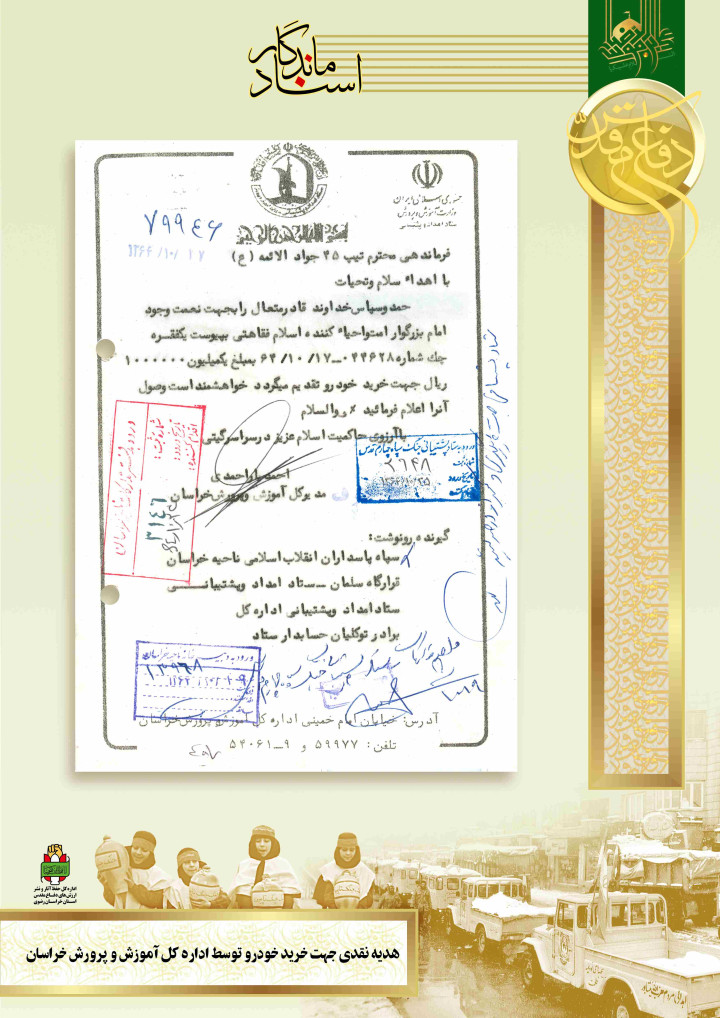 اسناد ماندگار
دفاع مقدس
جمهوری اسلامی ایران
وزارت آموزش و پرورش
ستاد امداد و پشتیبانی
۷۹۹۴۶
۱۳۶۴/۱۰/۱۷
فرماندهی محترم تیپ ۴۵ جواد الائمه (ع)
با اهداء سلام وتحیات
حمد وسپاس خداوند قادرمتعال را بجهت نعمت وجود
امام بزرگوار امت واحیاء کننده اسلام فقاهتی بپیوست یکفقره
چک شماره ۰۴۴۶۲۸ــ۶۴/۱۰/۱۷ بمبلغ یکمیلیون ۱۰۰۰۰۰۰
ریال جهت خرید خودرو تقدیم میگردد خواهشمند است وصول
آنرا اعلام فرمائید ٪ والسلام
باآرزوی حاکمیت اسلام عزیز درسراسرگیتی
احمد بابااحمدی
مدیرکل آموزش وپرورش خراسان
ورود به ستاد پشتیبانی جنگ سپاه چهارم قدس
۲۶۴۸
۳۱۴۶
گیرنده رونوشت:
سپاه پاسداران انقلاب اسلامی ناحیه خراسان
قرارگاه سلمان ــ ستاد امداد وپشتیبانی
ستاد امداد وپشتیبانی اداره کل
برادر توکلیان حسابدار ستاد
۱۳۹۶۸
آدرس: خیابان امام خمینی اداره کل آموزش و پرورش خراسان
تلفن: ۵۹۹۷۷ و ۹ــ۵۴۰۶۱
اداره کل حفظ آثار و نشر
ارزش‌های دفاع مقدس
استان خراسان رضوی
هدیه نقدی جهت خرید خودرو توسط اداره کل آموزش و پرورش خراسان